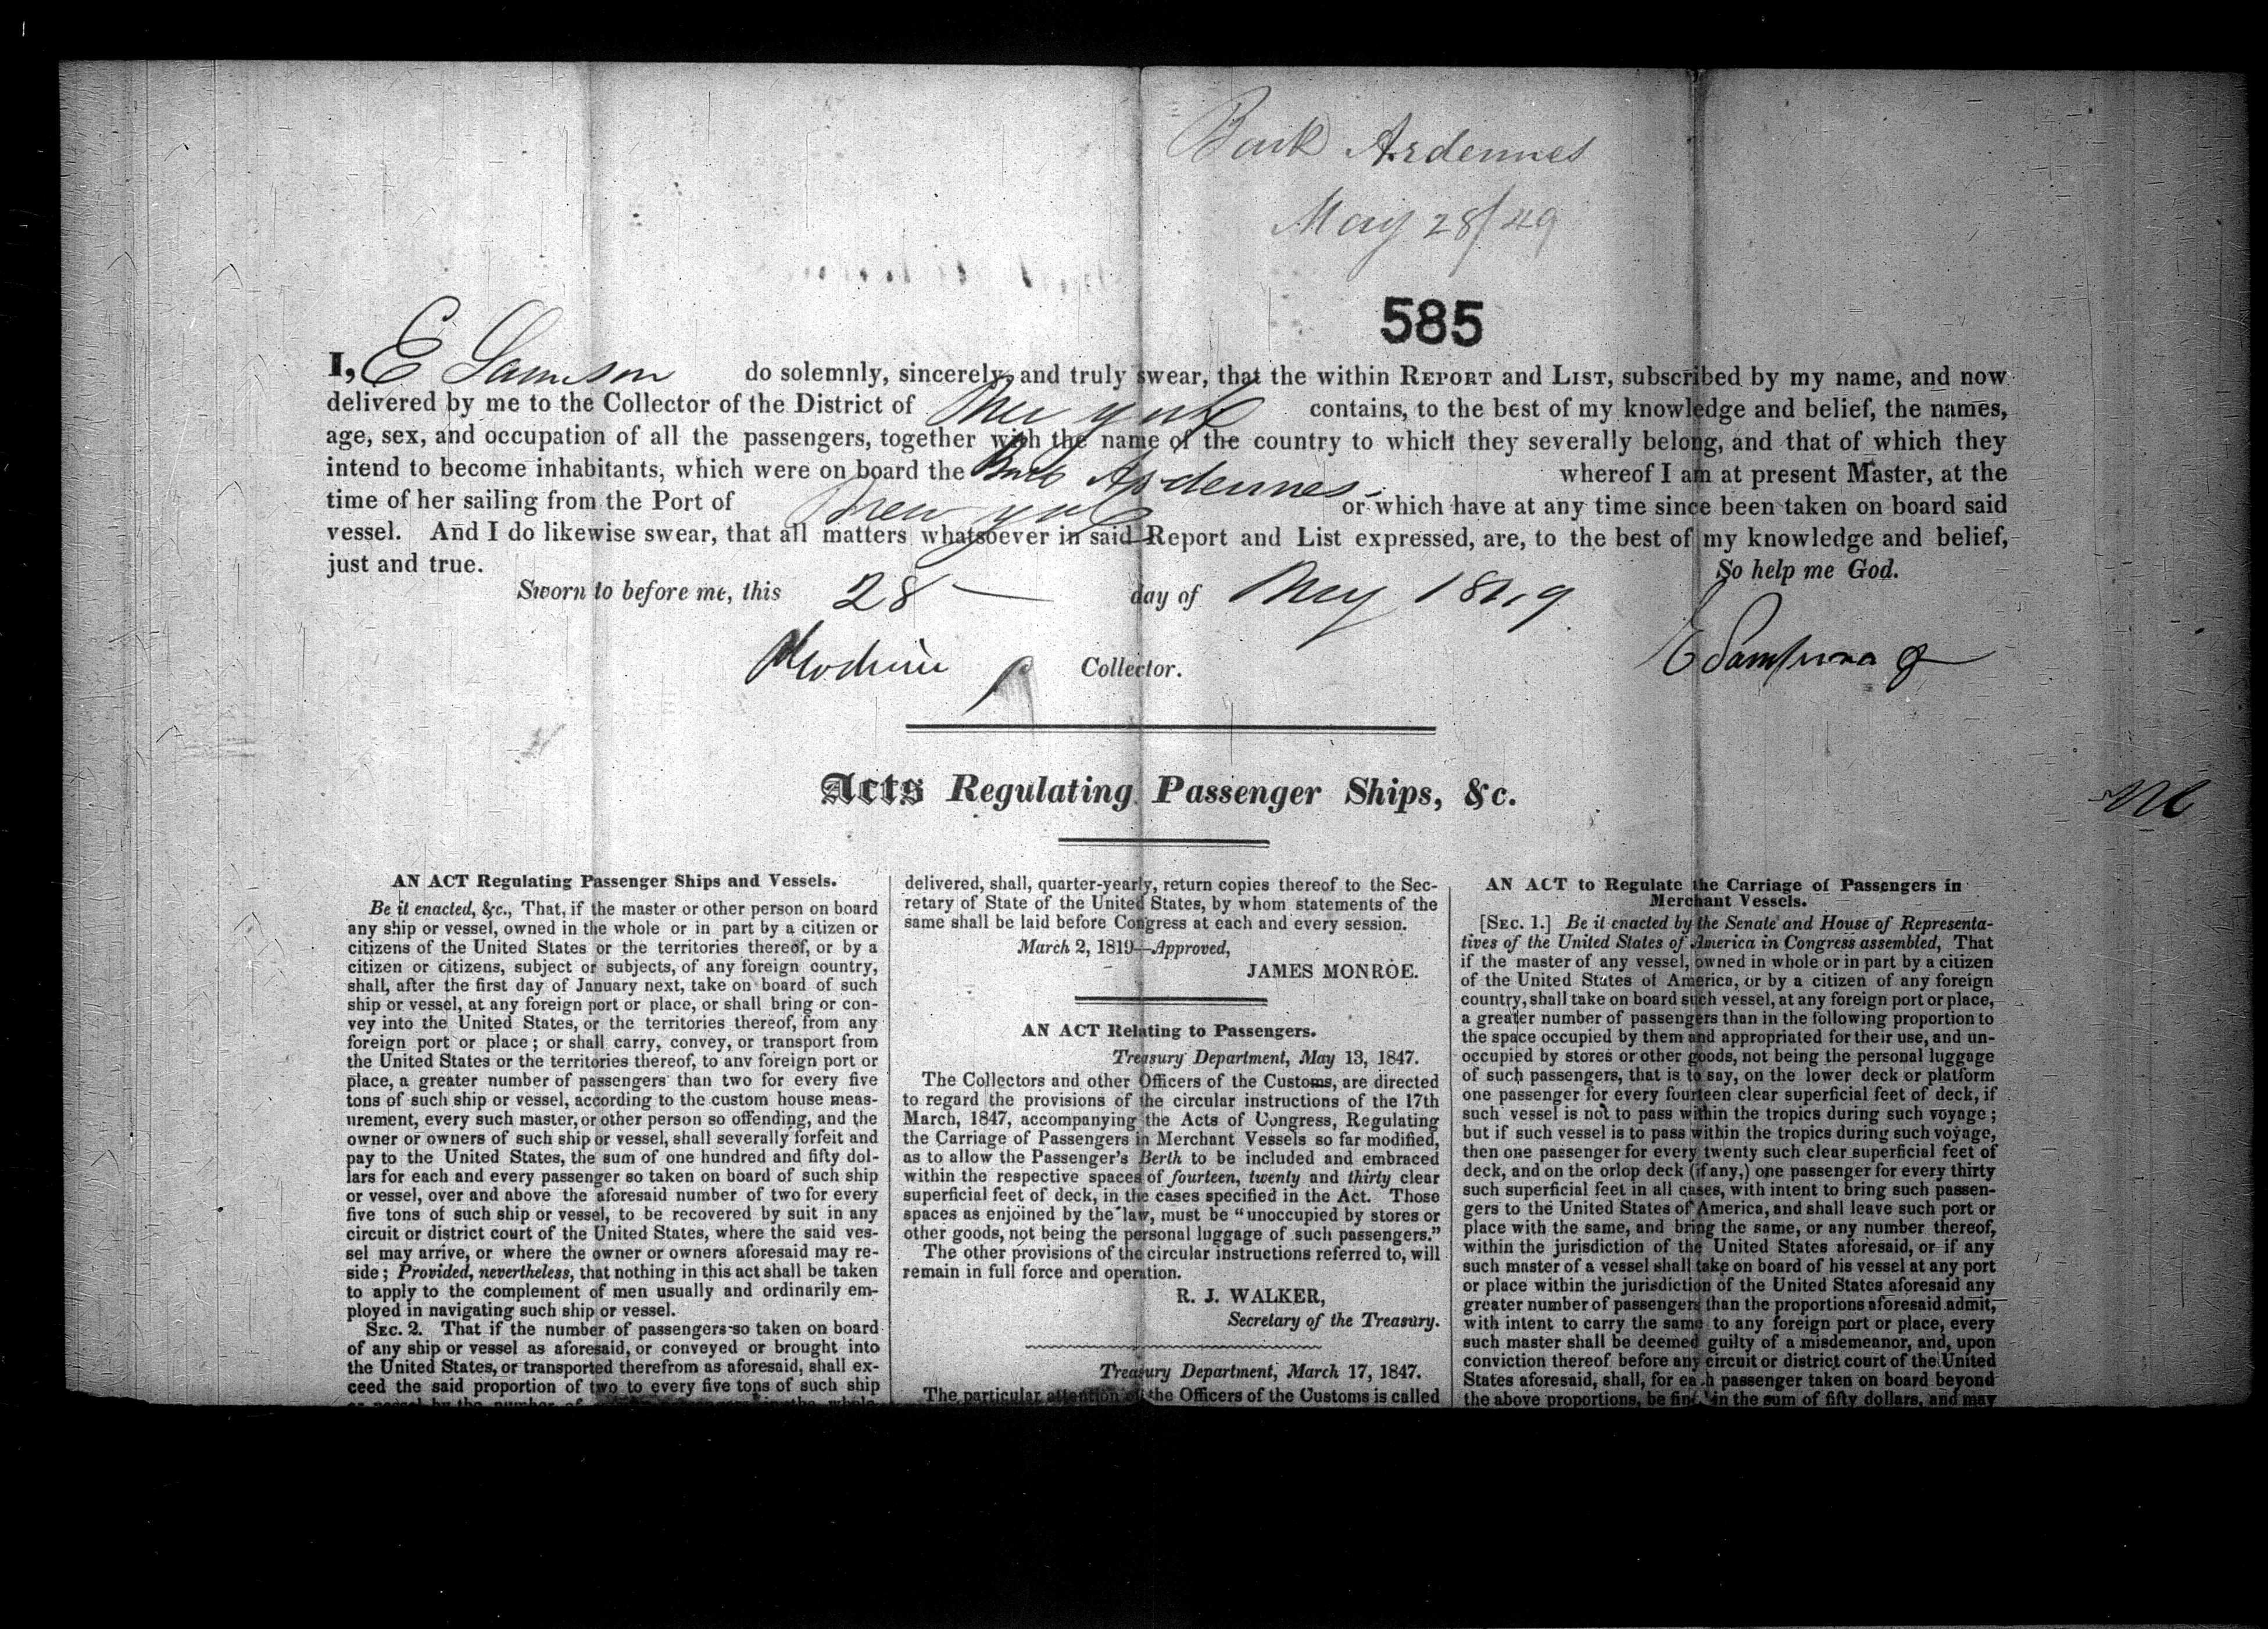 Bark Ardennes
May 28/49
585
I, E Samson do solemnly, sincerely, and truly swear, that the within REPORT and LIST, subscribed by my name, and now
delivered by me to the Collector of the District of New York contains, to the best of my knowledge and belief, the names,
age, sex, and occupation of all the passengers, together with the name of the country to which they severally belong, and that of which they
intend to become inhabitants, which were on board the Bark Ardennes whereof I am at present Master, at the
time of her sailing from the Port of New York or which have at any time since been taken on board said
vessel. And I do likewise swear, that all matters whatsoever in said Report and List expressed, are, to the best of my knowledge and belief,
just and true. So help me God.
Sworn to before me, this 28 day of May 1849
Collector.
Acts Regulating Passenger Ships, &c.
AN ACT Regulating Passenger Ships and Vessels.
Be it enacted, &c., That, if the master or other person on board
any ship or vessel, owned in the whole or in part by a citizen or
citizens of the United States or the territories thereof, or by a
citizen or citizens, subject or subjects, of any foreign country,
shall, after the first day of January next, take on board of such
ship or vessel, at any foreign port or place, or shall bring or con-
vey into the United States, or the territories thereof, from any
foreign port or place; or shall carry, convey, or transport from
the United States or the territories thereof, to any foreign port or
place, a greater number of passengers than two for every five
tons of such ship or vessel, according to the custom house meas-
urement, every such master, or other person so offending, and the
owner or owners of such ship or vessel, shall severally forfeit and
pay to the United States, the sum of one hundred and fifty dol-
lars for each and every passenger so taken on board of such ship
or vessel, over and above the aforesaid number of two for every
five tons of such ship or vessel, to be recovered by suit in any
circuit or district court of the United States, where the said ves-
sel may arrive, or where the owner or owners aforesaid may re-
side; Provided, nevertheless, that nothing in this act shall be taken
to apply to the complement of men usually and ordinarily em-
ployed in navigating such ship or vessel.
SEC. 2. That if the number of passengers so taken on board
of any ship or vessel as aforesaid, or conveyed or brought into
the United States, or transported therefrom as aforesaid, shall ex-
ceed the said proportion of two to every five tons of such ship
delivered, shall, quarter-yearly, return copies thereof to the Sec-
retary of State of the United States, by whom statements of the
same shall be laid before Congress at each and every session.
March 2, 1819—Approved,
JAMES MONROE.
AN ACT Relating to Passengers.
Treasury Department, May 13, 1847.
The Collectors and other Officers of the Customs, are directed
to regard the provisions of the circular instructions of the 17th
March, 1847, accompanying the Acts of Congress, Regulating
the Carriage of Passengers in Merchant Vessels so far modified,
as to allow the Passenger's Berth to be included and embraced
within the respective spaces of fourteen, twenty and thirty clear
superficial feet of deck, in the cases specified in the Act. Those
spaces as enjoined by the law, must be "unoccupied by stores or
other goods, not being the personal luggage of such passengers."
The other provisions of the circular instructions referred to, will
remain in full force and operation.
R. J. WALKER,
Secretary of the Treasury.
Treasury Department, March 17, 1847.
The particular attention of the Officers of the Customs is called
AN ACT to Regulate the Carriage of Passengers in
Merchant Vessels.
[SEC. 1.] Be it enacted by the Senate and House of Representa-
tives of the United States of America in Congress assembled, That
if the master of any vessel, owned in whole or in part by a citizen
of the United States of America, or by a citizen of any foreign
country, shall take on board such vessel, at any foreign port or place,
a greater number of passengers than in the following proportion to
the space occupied by them and appropriated for their use, and un-
occupied by stores or other goods, not being the personal luggage
of such passengers, that is to say, on the lower deck or platform
one passenger for every fourteen clear superficial feet of deck, if
such vessel is not to pass within the tropics during such voyage;
but if such vessel is to pass within the tropics during such voyage,
then one passenger for every twenty such clear superficial feet of
deck, and on the orlop deck (if any,) one passenger for every thirty
such superficial feet in all cases, with intent to bring such passen-
gers to the United States of America, and shall leave such port or
place with the same, and bring the same, or any number thereof,
within the jurisdiction of the United States aforesaid, or if any
such master of a vessel shall take on board of his vessel at any port
or place within the jurisdiction of the United States aforesaid any
greater number of passengers than the proportions aforesaid admit,
with intent to carry the same to any foreign port or place, every
such master shall be deemed guilty of a misdemeanor, and, upon
conviction thereof before any circuit or district court of the United
States aforesaid, shall, for each passenger taken on board beyond
the above proportions, be fined in the sum of fifty dollars, and may